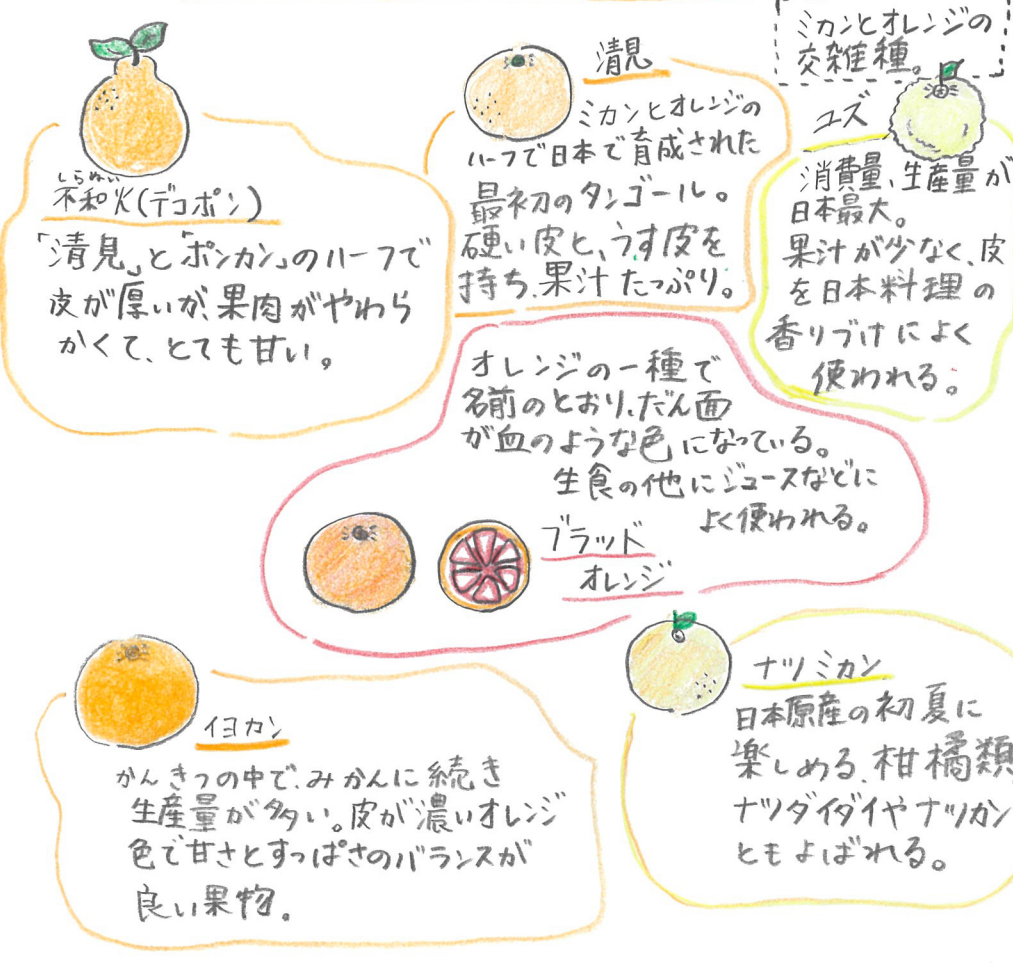 ミカンとオレンジの
交雑種。
しらぬい
不和火(デコポン)
「清見」と「ポンカン」のハーフで
皮が厚いが、果肉がやわら
かくて、とても甘い。
清見
ミカンとオレンジの
ハーフで日本で育成された
最初のタンゴール。
硬い皮と、うす皮を
持ち、果汁たっぷり。
ユズ
消費量、生産量が
日本最大。
果汁が少なく、皮
を日本料理の
香りづけによく
使われる。
オレンジの一種で
名前のとおり、だん面
が血のような色になっている。
生食の他にジュースなどに
よく使われる。
ブラッド
オレンジ
イヨカン
かんきつの中で、みかんに続き
生産量が多い。皮が濃いオレンジ
色で甘さとすっぱさのバランスが
良い果物。
ナツミカン
日本原産の初夏に
楽しめる、柑橘類
ナツダイダイやナツカン
ともよばれる。